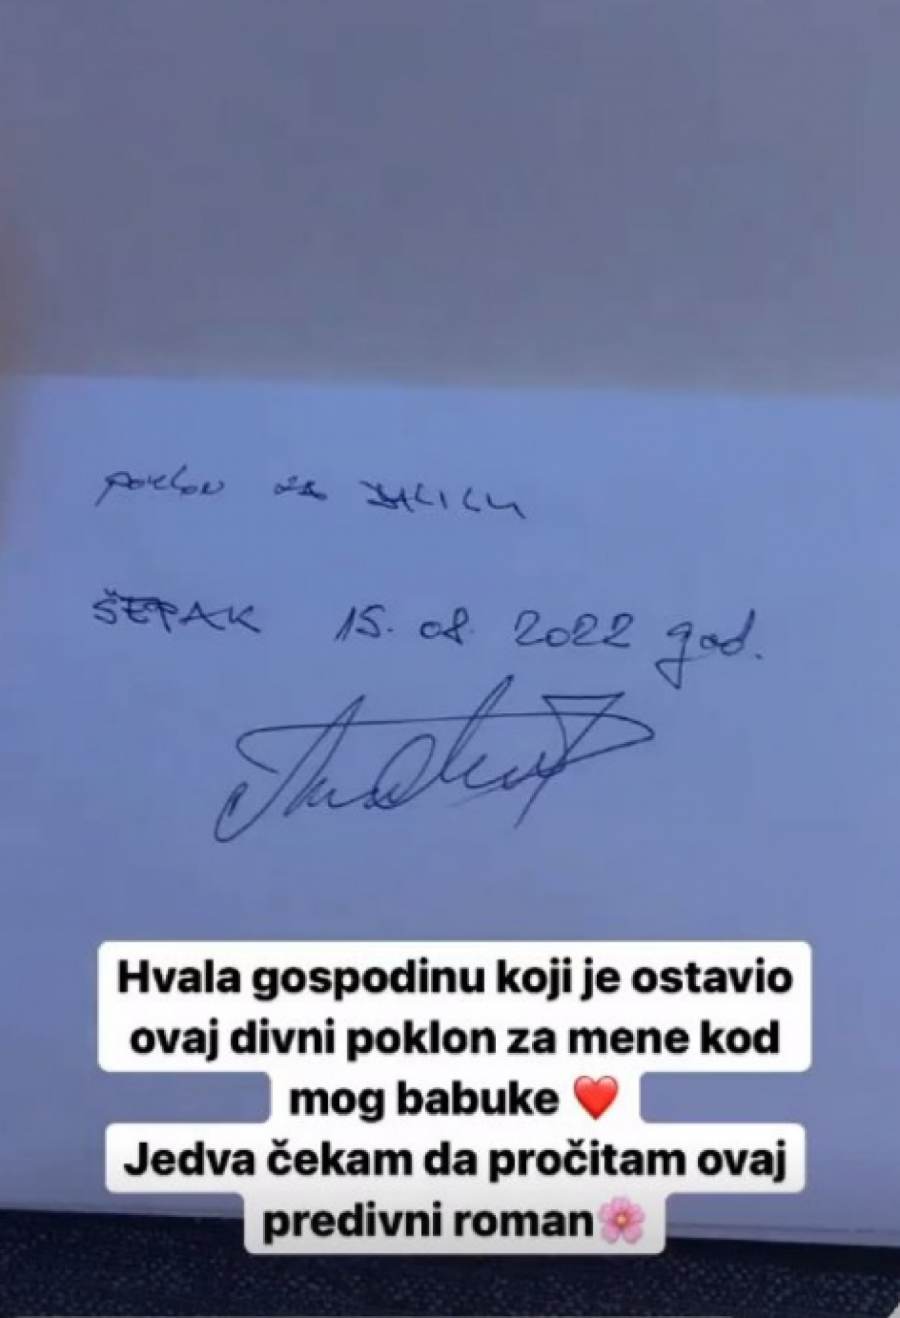 poklon za
ŠEPAK 15. 08. 2022 god.
Hvala gospodinu koji je ostavio
ovaj divni poklon za mene kod
mog babuke ❤️
Jedva čekam da pročitam ovaj
predivni roman🌸